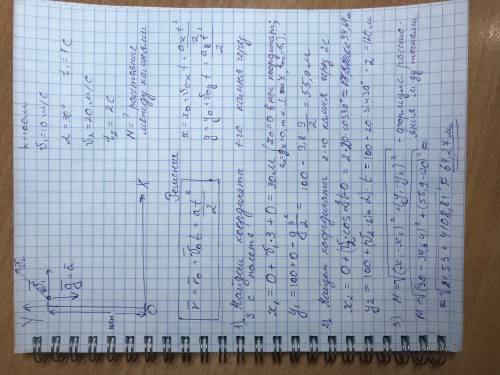 h=100м
v₁=10 м/с
α=30° t₁=1с
v₂=20 м/с
t₂=2с
H=? расстояние
между камнями
Y
v₂
v₁
g=a
100м
O
X
Решение
r = r₀ + v₀t + at²/2
x = x₀ + v₀ₓt + aₓt²/2
y = y₀ + v₀ᵧt + aᵧt²/2
1) Найдем координаты 1-го камня через
3 с полета
x₁ = 0 + v₁·3 + 0 = 30м (x₀=0 в нач. координат;
y₁ = 100+0 - g 3²/2 = 100 - 9,8 9/2 = 55,9 м
2) Найдем координаты 2-го камня через 2с
x₂ = 0 + (v₂·cosα)t + 0 = 2·20·cos30° = 34,64 м
y₂ = 100 + (v₂·sinα)·t = 100 - 20·sin30°·2 = 120 м
3) H = √(x₁-x₂)² + (y₁-y₂)² - формула расстояния между точками
H = √(30-34,64)² + (55,9-120)² =
= √21,53 + 4108,81 ≈ 64,27 м